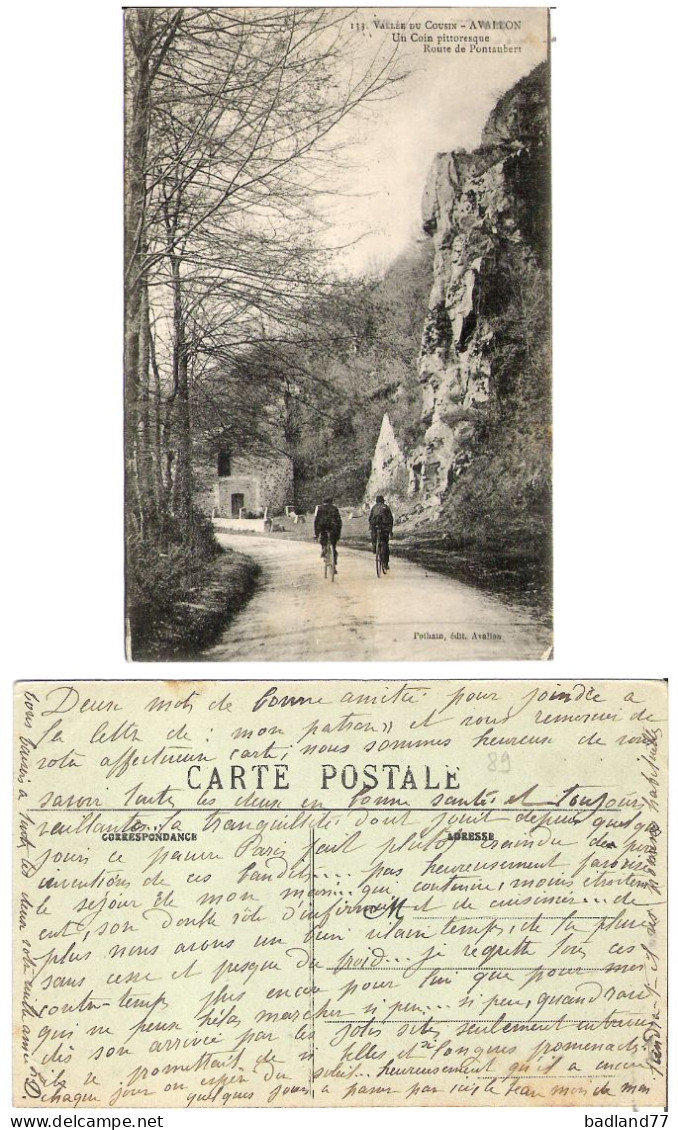 133. VALLÉE DU COUSIN - AVALLON
Un Coin pittoresque
Route de Pontaubert
Pothain, édit. Avallon
Deux mots de bonne amitié pour joindre a
la lettre de "mon patron" et vous remercier de
votre affectueuse carte, nous sommes heureuse de vous
89
CARTE POSTALE
savoir toutes les deux en bonne santé et toujours
veillantes. la tranquillité dont jouit depuis quelque
CORRESPONDANCE
ADRESSE
jours ce pauvre Paris peut plutôt craindre des
inventions de ces bandits.... pas heureusement favorisé
le séjour de mon mari... qui continue, moins
son double rôle d'infirmier et de cuisinier... de
plus nous avons un bien vilain temps, de la pluie
sans cesse et presque du froid... je regrette tous ces
contre-temps plus encore pour lui que pour moi
qui ne peux hélas marcher si peu... si peu, quand
dès son arrivée par les jolis sites seulement
ils se promettait de si belles et si longues promenades.
chaque jour on espère du soleil... heureusement qu'il a encore
quelques jours a passer par ici, le beau mon de mon
vous baisers à toutes les deux votre vieille amie
badland77